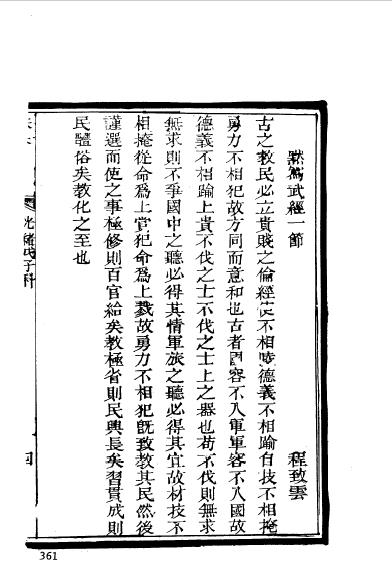 默寫武經一節 程致雲
古之教民必立貴賤之倫經使不相陵德義不相踰材技不相掩
勇力不相犯故方同而意和也古者國容不入軍軍容不入國故
德義不相踰上貴不伐之士不伐之士上之器也苟不伐則無求
無求則不爭國中之聽必得其情軍旅之聽必得其宜故材技不
相掩從命爲上賞犯命爲上戮故勇力不相犯既致教其民然後
謹選而使之事極修則百官給矣教極省則民興良矣習貫成則
民體俗矣教化之至也
光緒 子科
四
361